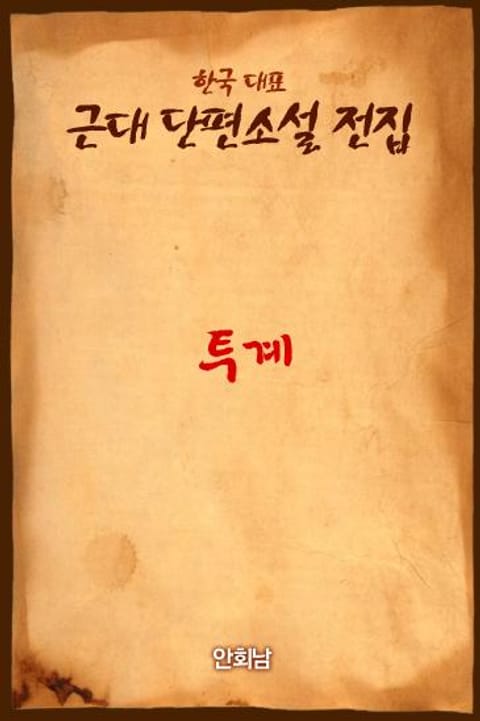 한국 대표
근대 단편소설 전집
투계
안회남